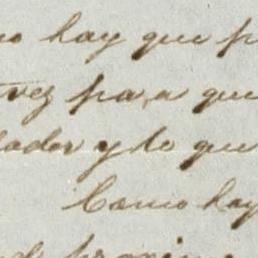 no hay que p
vez para que
lados y lo que
Como hay